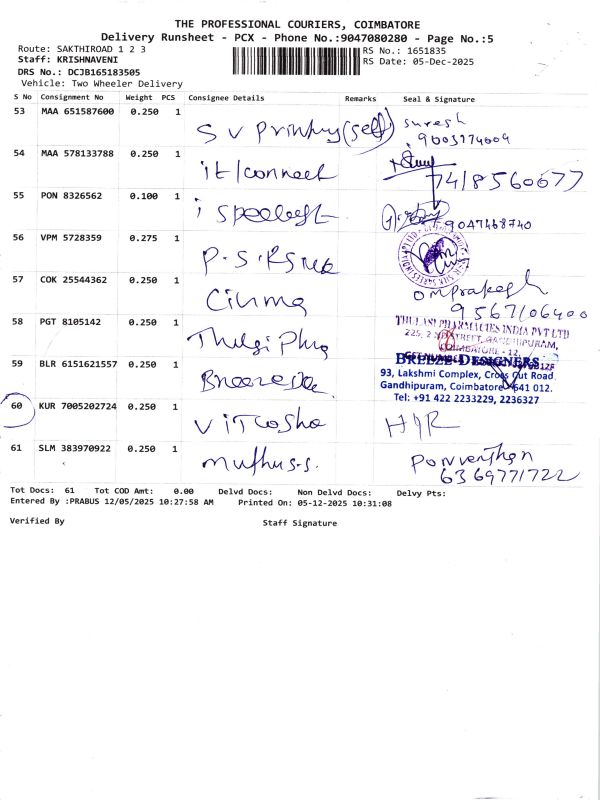 THE PROFESSIONAL COURIERS, COIMBATORE
Delivery Runsheet - PCX - Phone No.:9047080280 - Page No.:5
Route: SAKTHIROAD 1 2 3
RS No.: 1651835
Staff: KRISHNAVENI
RS Date: 05-Dec-2025
DRS No.: DCJB165183505
Vehicle: Two Wheeler Delivery
S No Consignment No Weight PCS Consignee Details Remarks Seal & Signature
53 MAA 651587600 0.250 1 S V Printing (self) Suresh
9003174009
54 MAA 578133788 0.250 1 it/connect
7418560677
55 PON 8326562 0.100 1 i
9047468740
56 VPM 5728359 0.275 1 P.S.R Silk
57 COK 25544362 0.250 1 omprakash
9567106400
58 PGT 8105142 0.250 1 THULASI PHARMACIES INDIA PVT LTD
225, 2 STREET, GANDHIPURAM,
COIMBATORE - 12.
59 BLR 6151621557 0.250 1 BREEZE DESIGNERS
93, Lakshmi Complex, Cross Cut Road
Gandhipuram, Coimbatore - 641 012.
Tel: +91 422 2233229, 2236327
60 KUR 7005202724 0.250 1
61 SLM 383970922 0.250 1 muthu s.s.
6369771722
Tot Docs: 61 Tot COD Amt: 0.00 Delvd Docs: Non Delvd Docs: Delvy Pts:
Entered By :PRABUS 12/05/2025 10:27:58 AM Printed On: 05-12-2025 10:31:08
Verified By Staff Signature